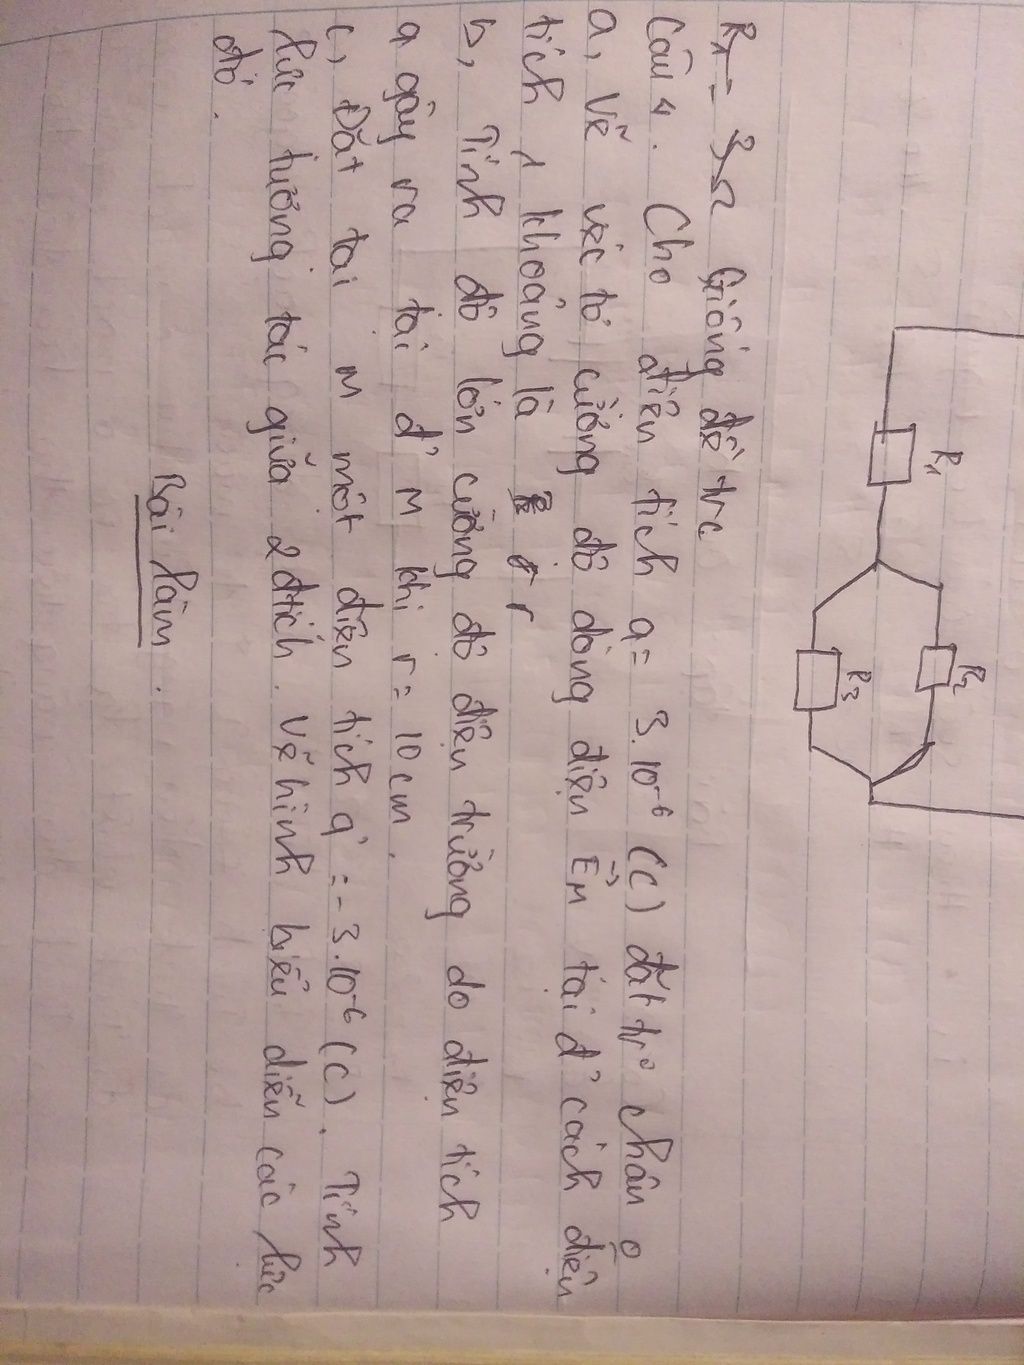 R1
R2
R3
R1 = 3Ω Giống đề trc
Câu 4. Cho điện tích q = 3.10⁻⁶ (C) đặt tr° chân o
a, Vẽ véc tơ cường độ dòng điện E⃗M tại đ' cách điện
tích 1 khoảng là r
b, Tính độ lớn cường độ điện trường do điện tích
q gây ra tại đ' M khi r = 10 cm.
c, Đặt tại M một điện tích q' = -3.10⁻⁶ (C). Tính
lực tương tác giữa 2 đtích. Vẽ hình biểu diễn các lực
đó.
Bài làm.